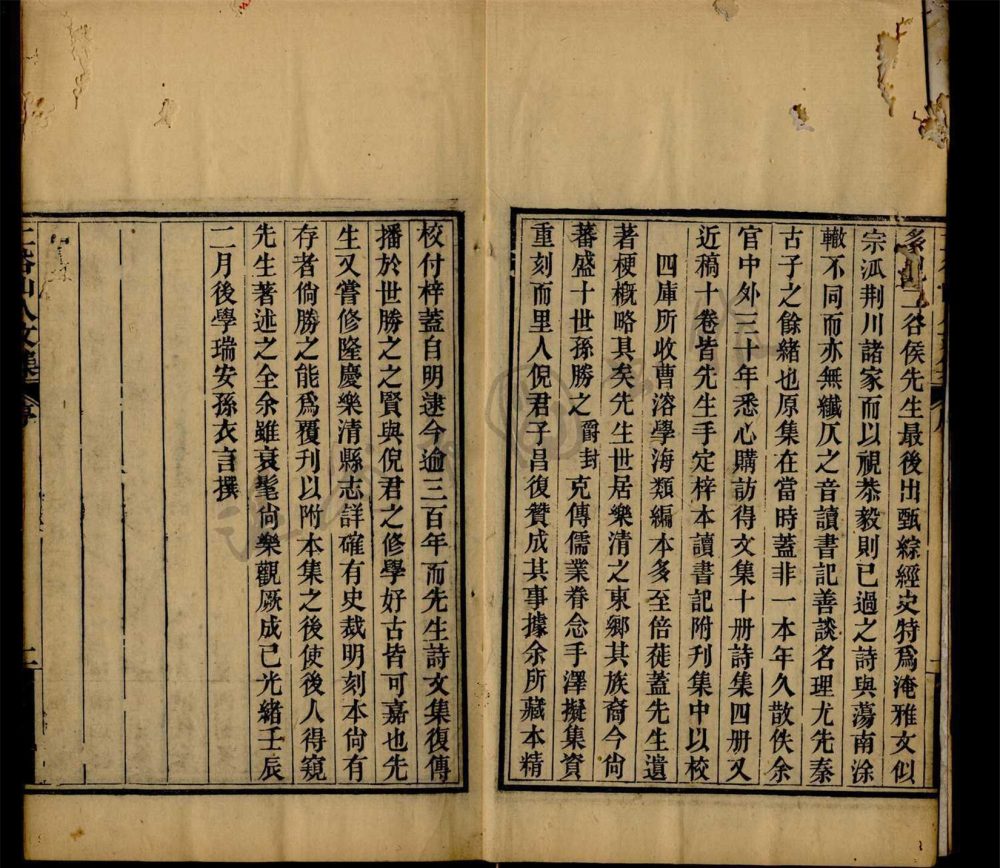 二谷侯先生最後出甄綜經史特爲淹雅文似
宗泒荆川諸家而以視恭毅則已過之詩與蕩南涂
轍不同而亦無纎仄之音讀書記善談名理尤先秦
古子之餘緒也原集在當時蓋非一本年久散佚余
官中外三十年悉心購訪得文集十册詩集四册又
近稿十卷皆先生手定梓本讀書記附刊集中以校
四庫所收曹溶學海類編本多至倍蓰蓋先生遺
著梗槪略具矣先生世居樂清之東鄉其族裔今尙
蕃盛十世孫勝之爵封克傳儒業眷念手澤擬集資
重刻而里人倪君子昌復贊成其事據余所藏本精
校付梓蓋自明逮今逾三百年而先生詩文集復傳
播於世勝之之賢與倪君之修學好古皆可嘉也先
生又嘗修隆慶樂清縣志詳確有史裁明刻本尙有
存者倘勝之能爲覆刊以附本集之後使後人得窺
先生著述之全余雖衰髦尙樂觀厥成已光緒壬辰
二月後學瑞安孫衣言撰
二谷山人文集 序
二